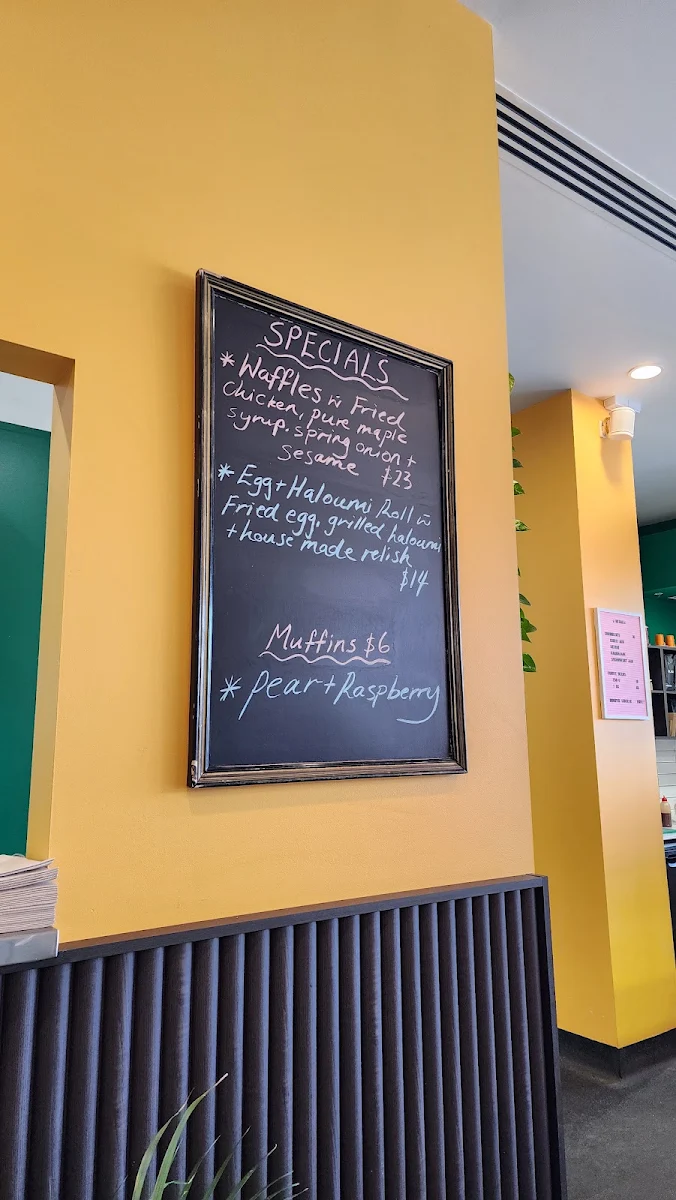 SPECIALS
* Waffles w̅ Fried
chicken, pure maple
syrup, spring onion +
sesame $23
* Egg + Haloumi Roll w̅
Fried egg, grilled haloumi
+ house made relish
$14
Muffins $6
* pear + Raspberry